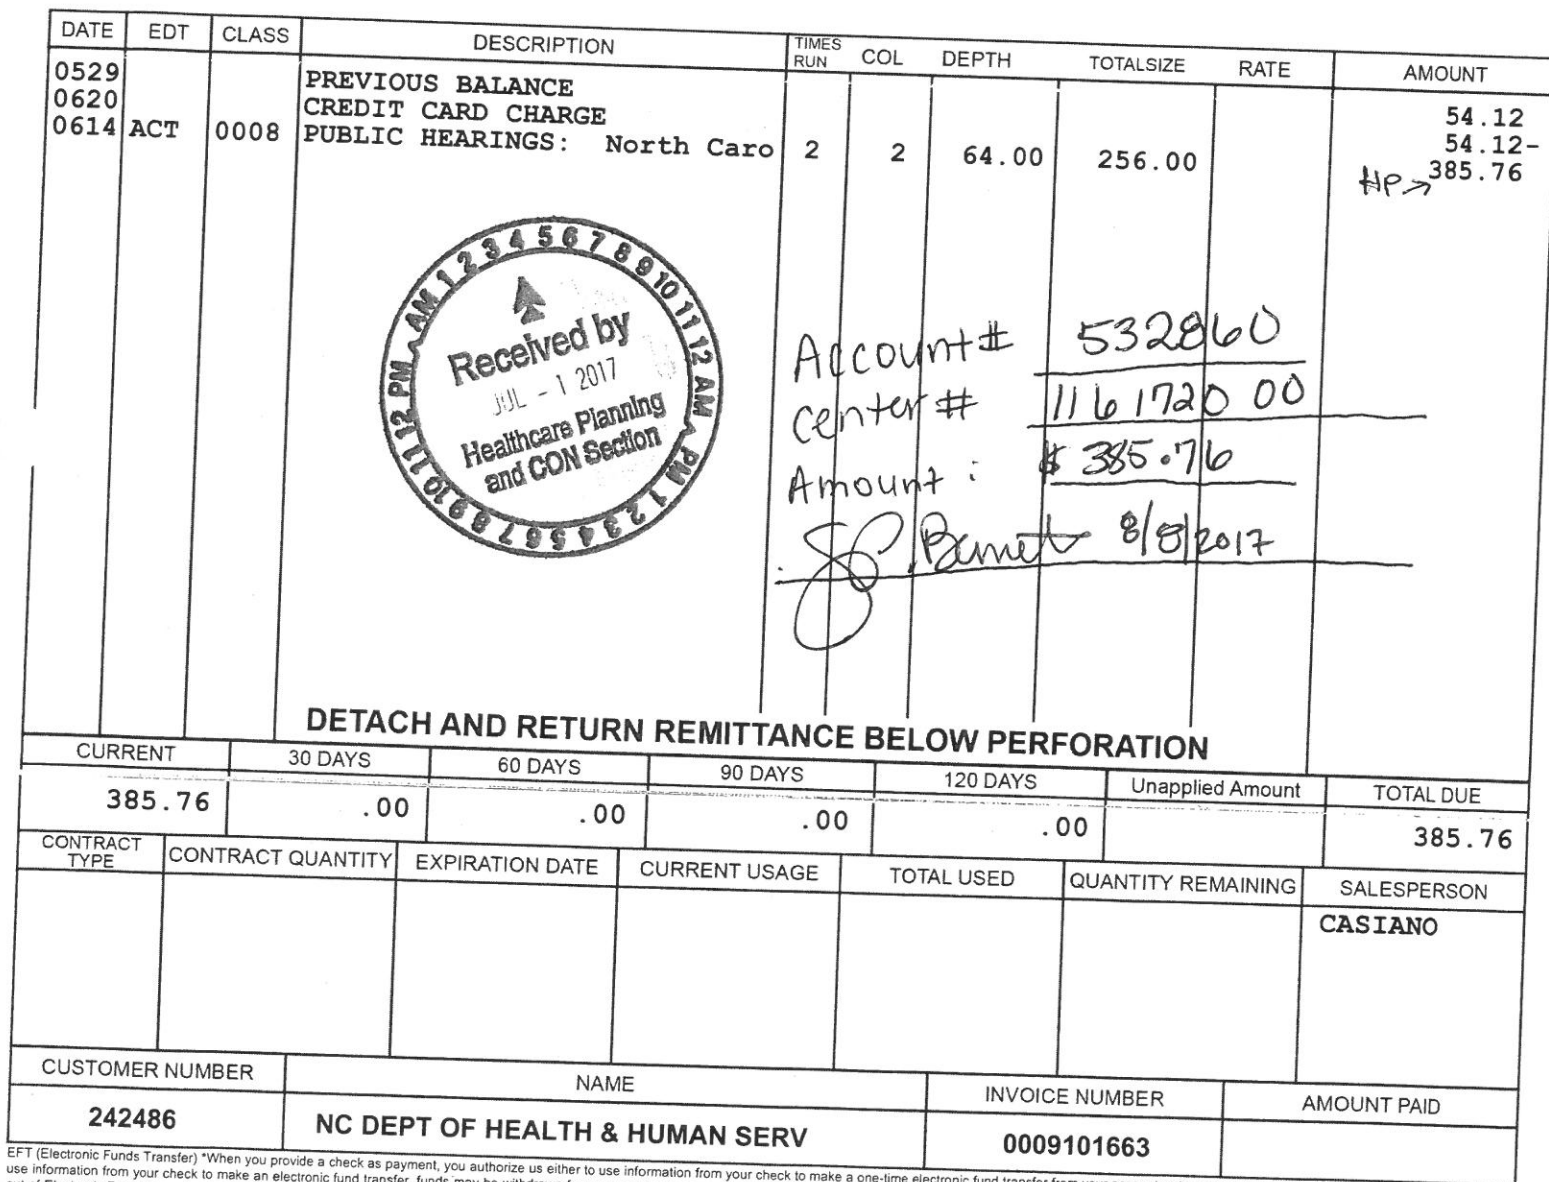 DATE EDT CLASS DESCRIPTION TIMES RUN COL DEPTH TOTALSIZE RATE AMOUNT
0529 PREVIOUS BALANCE 54.12
0620 CREDIT CARD CHARGE 54.12-
0614 ACT 0008 PUBLIC HEARINGS: North Caro 2 2 64.00 256.00 385.76
HP→
AM 1 2 3 4 5 6 7 8 9 10 11 12 AM PM 1 2 3 4 5 6 7 8 9 10 11 12 PM
Received by
JUL - 1 2017
Healthcare Planning
and CON Section
Account # 532860
center # 1161720 00
Amount: $ 385.76
8/8/2017
DETACH AND RETURN REMITTANCE BELOW PERFORATION
CURRENT 30 DAYS 60 DAYS 90 DAYS 120 DAYS Unapplied Amount TOTAL DUE
385.76 .00 .00 .00 .00 385.76
CONTRACT TYPE CONTRACT QUANTITY EXPIRATION DATE CURRENT USAGE TOTAL USED QUANTITY REMAINING SALESPERSON
CASIANO
CUSTOMER NUMBER NAME INVOICE NUMBER AMOUNT PAID
242486 NC DEPT OF HEALTH & HUMAN SERV 0009101663
EFT (Electronic Funds Transfer) *When you provide a check as payment, you authorize us either to use information from your check to make a one-time electronic fund transfer from your
use information from your check to make an electronic fund transfer, funds may be